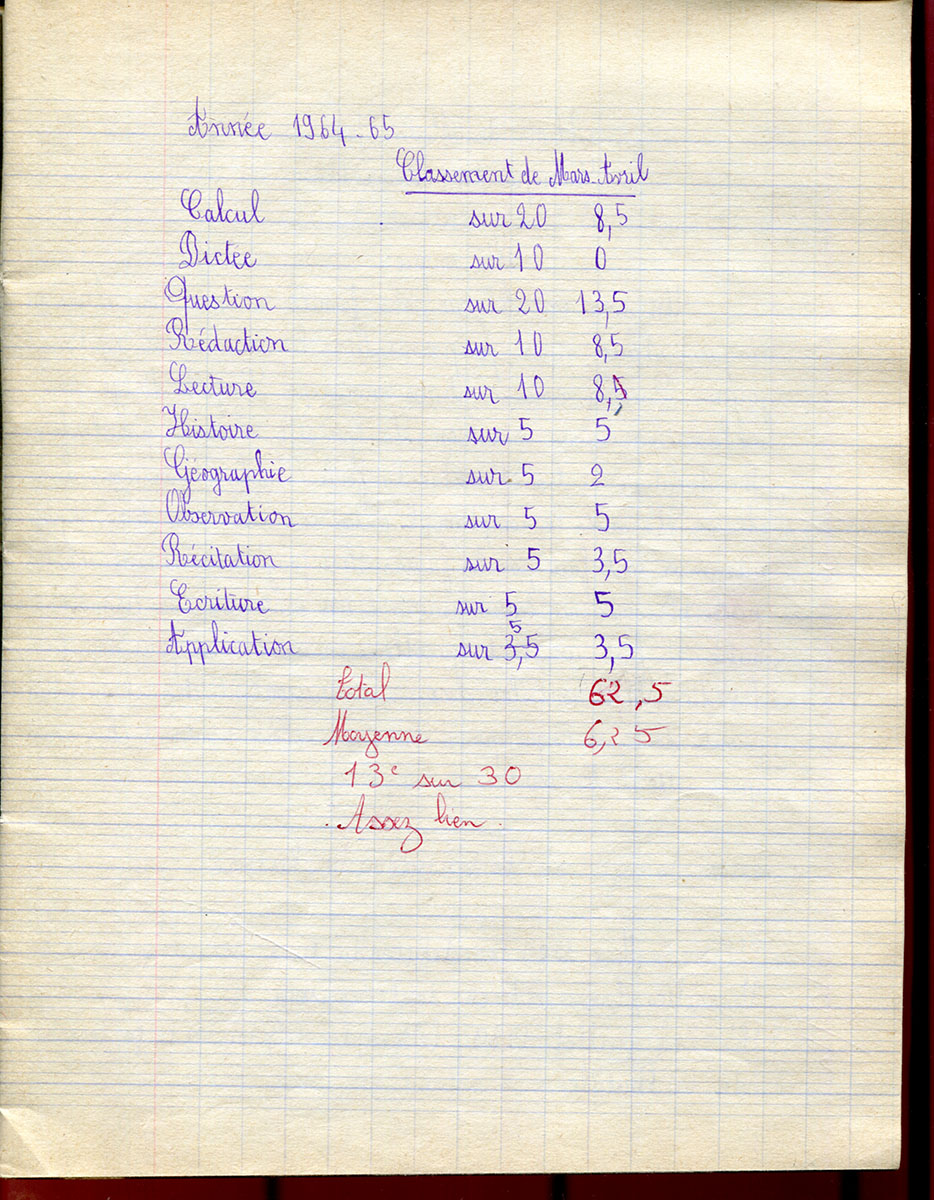 Année 1964-65
Classement de Mars-Avril
Calcul sur 20 8,5
Dictée sur 10 0
Question sur 20 13,5
Rédaction sur 10 8,5
Lecture sur 10 8,5
Histoire sur 5 5
Géographie sur 5 2
Observation sur 5 5
Récitation sur 5 3,5
Ecriture sur 5 5
5
Application sur 3,5 3,5
total 62,5
Moyenne 6,25
13e sur 30
Assez bien.